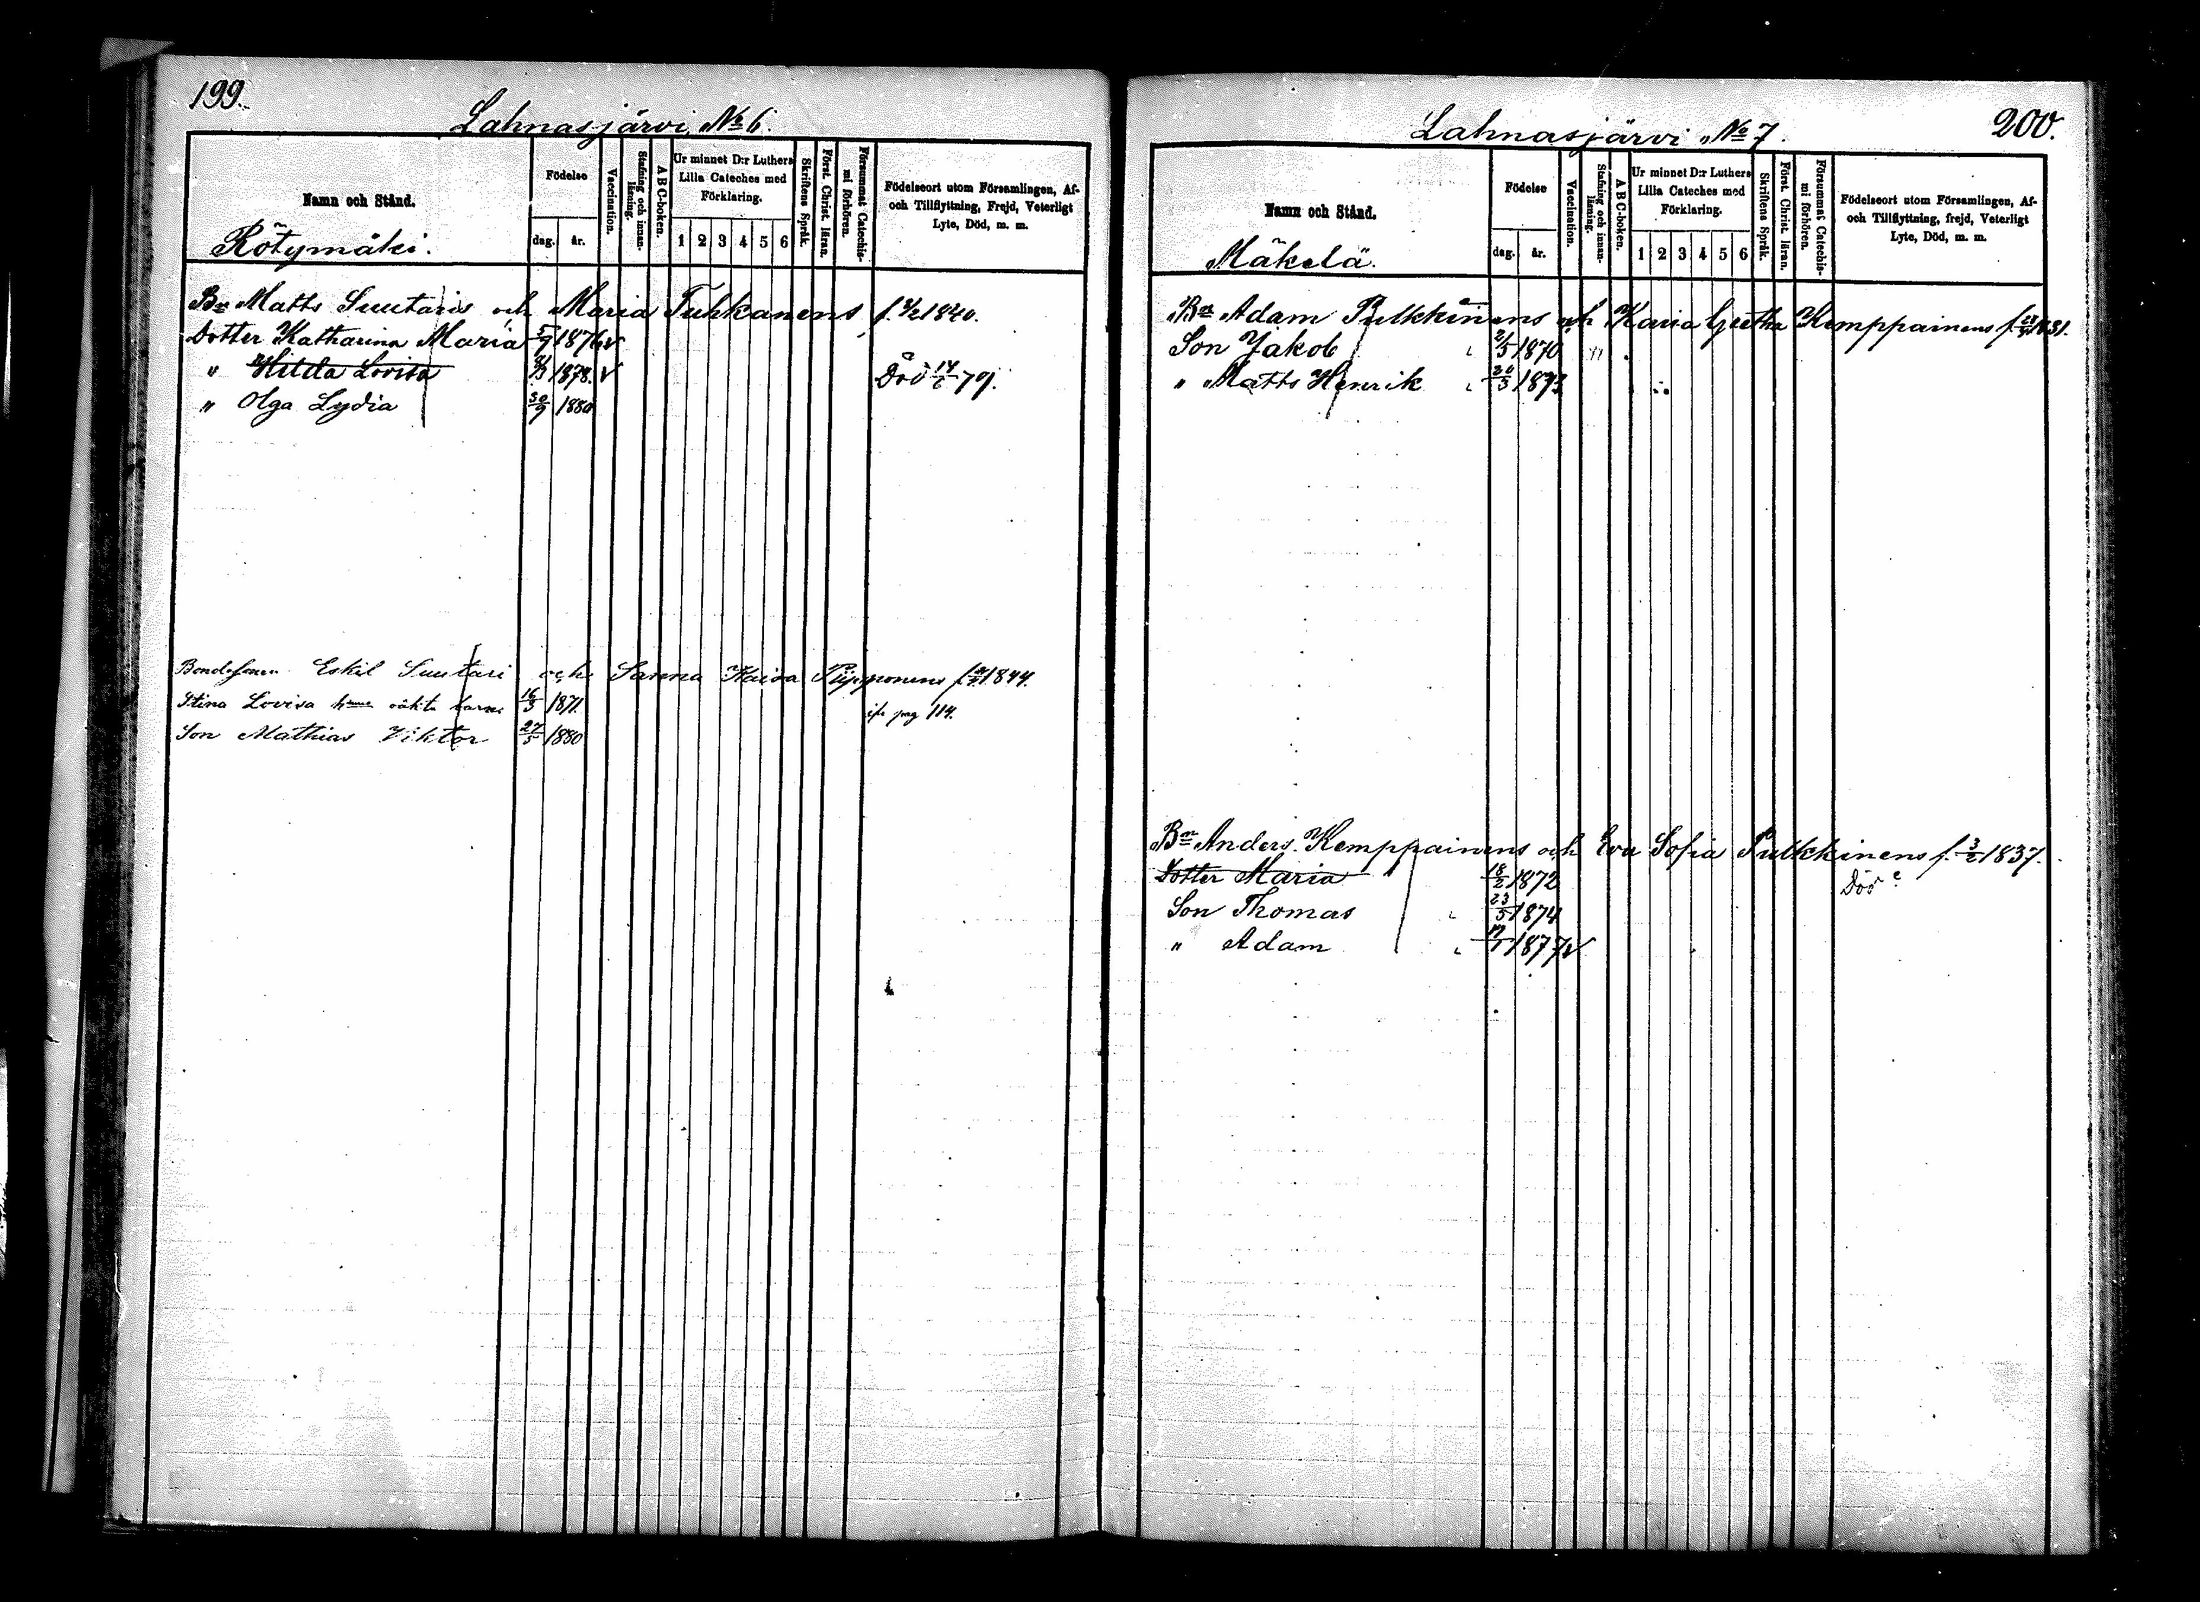 199.
Lahnasjärvi No 6.
Namn och Stånd.
Födelse
dag. år.
Vaccination.
Stafning och innanläsning.
ABC-boken.
Ur minnet D:r Luthers Lilla Cateches med Förklaring.
1 2 3 4 5 6
Skriftens Språk.
Först. Christ. läran.
Försummat Catechismi förhören.
Födelseort utom Församlingen, Af- och Tillflyttning, Frejd, Veterligt Lyte, Död, m. m.
Rötymäki.
Bn Matts Suutaris och Maria Tuhkanens f. 1840.
Dotter Katharina Maria 5/9 1876 v
" Hilda Lovisa 1878. v Död 79.
" Olga Lydia 30/9 1880
Bondesonen Eskil Suutari och Sanna Kaisa Piipponens f. 1844.
Stina Lovisa oäkta barn 16/3 1871. pag 114.
Son Mathias Viktor 27/5 1880
200.
Lahnasjärvi No 7.
Namn och Stånd.
Födelse
dag. år.
Vaccination.
Stafning och innanläsning.
ABC-boken.
Ur minnet D:r Luthers Lilla Cateches med Förklaring.
1 2 3 4 5 6
Skriftens Språk.
Först. Christ. läran.
Försummat Catechismi förhören.
Födelseort utom Församlingen, Af- och Tillflyttning, frejd, Veterligt Lyte, Död, m. m.
Mäkelä.
Bn Adam Pulkkinens och Karia Gretha Kemppainens f. 1831.
Son Jakob 2/5 1870 "
" Matts Henrik 20/3 1873
Bn Anders Kemppainens och Eva Sofia Pulkkinens f. 3/2 1837.
Dotter Maria 18/2 1872 Död
Son Thomas 23/5 1874
" Adam 1877 v